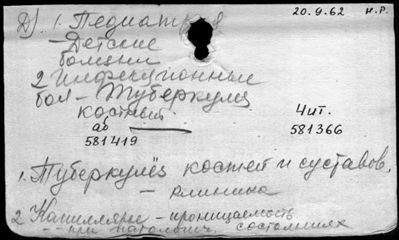 Д). 1. Педиатрия
20.9.62 н.р.
- Детские
болезни
2 Инфекционные
бол- Туберкулез
костный
аб
581419
Чит.
581366
1. Туберкулёз костей и суставов.
- клиника
2 Капиллярн - проницаемость
- - при патологич. состояниях